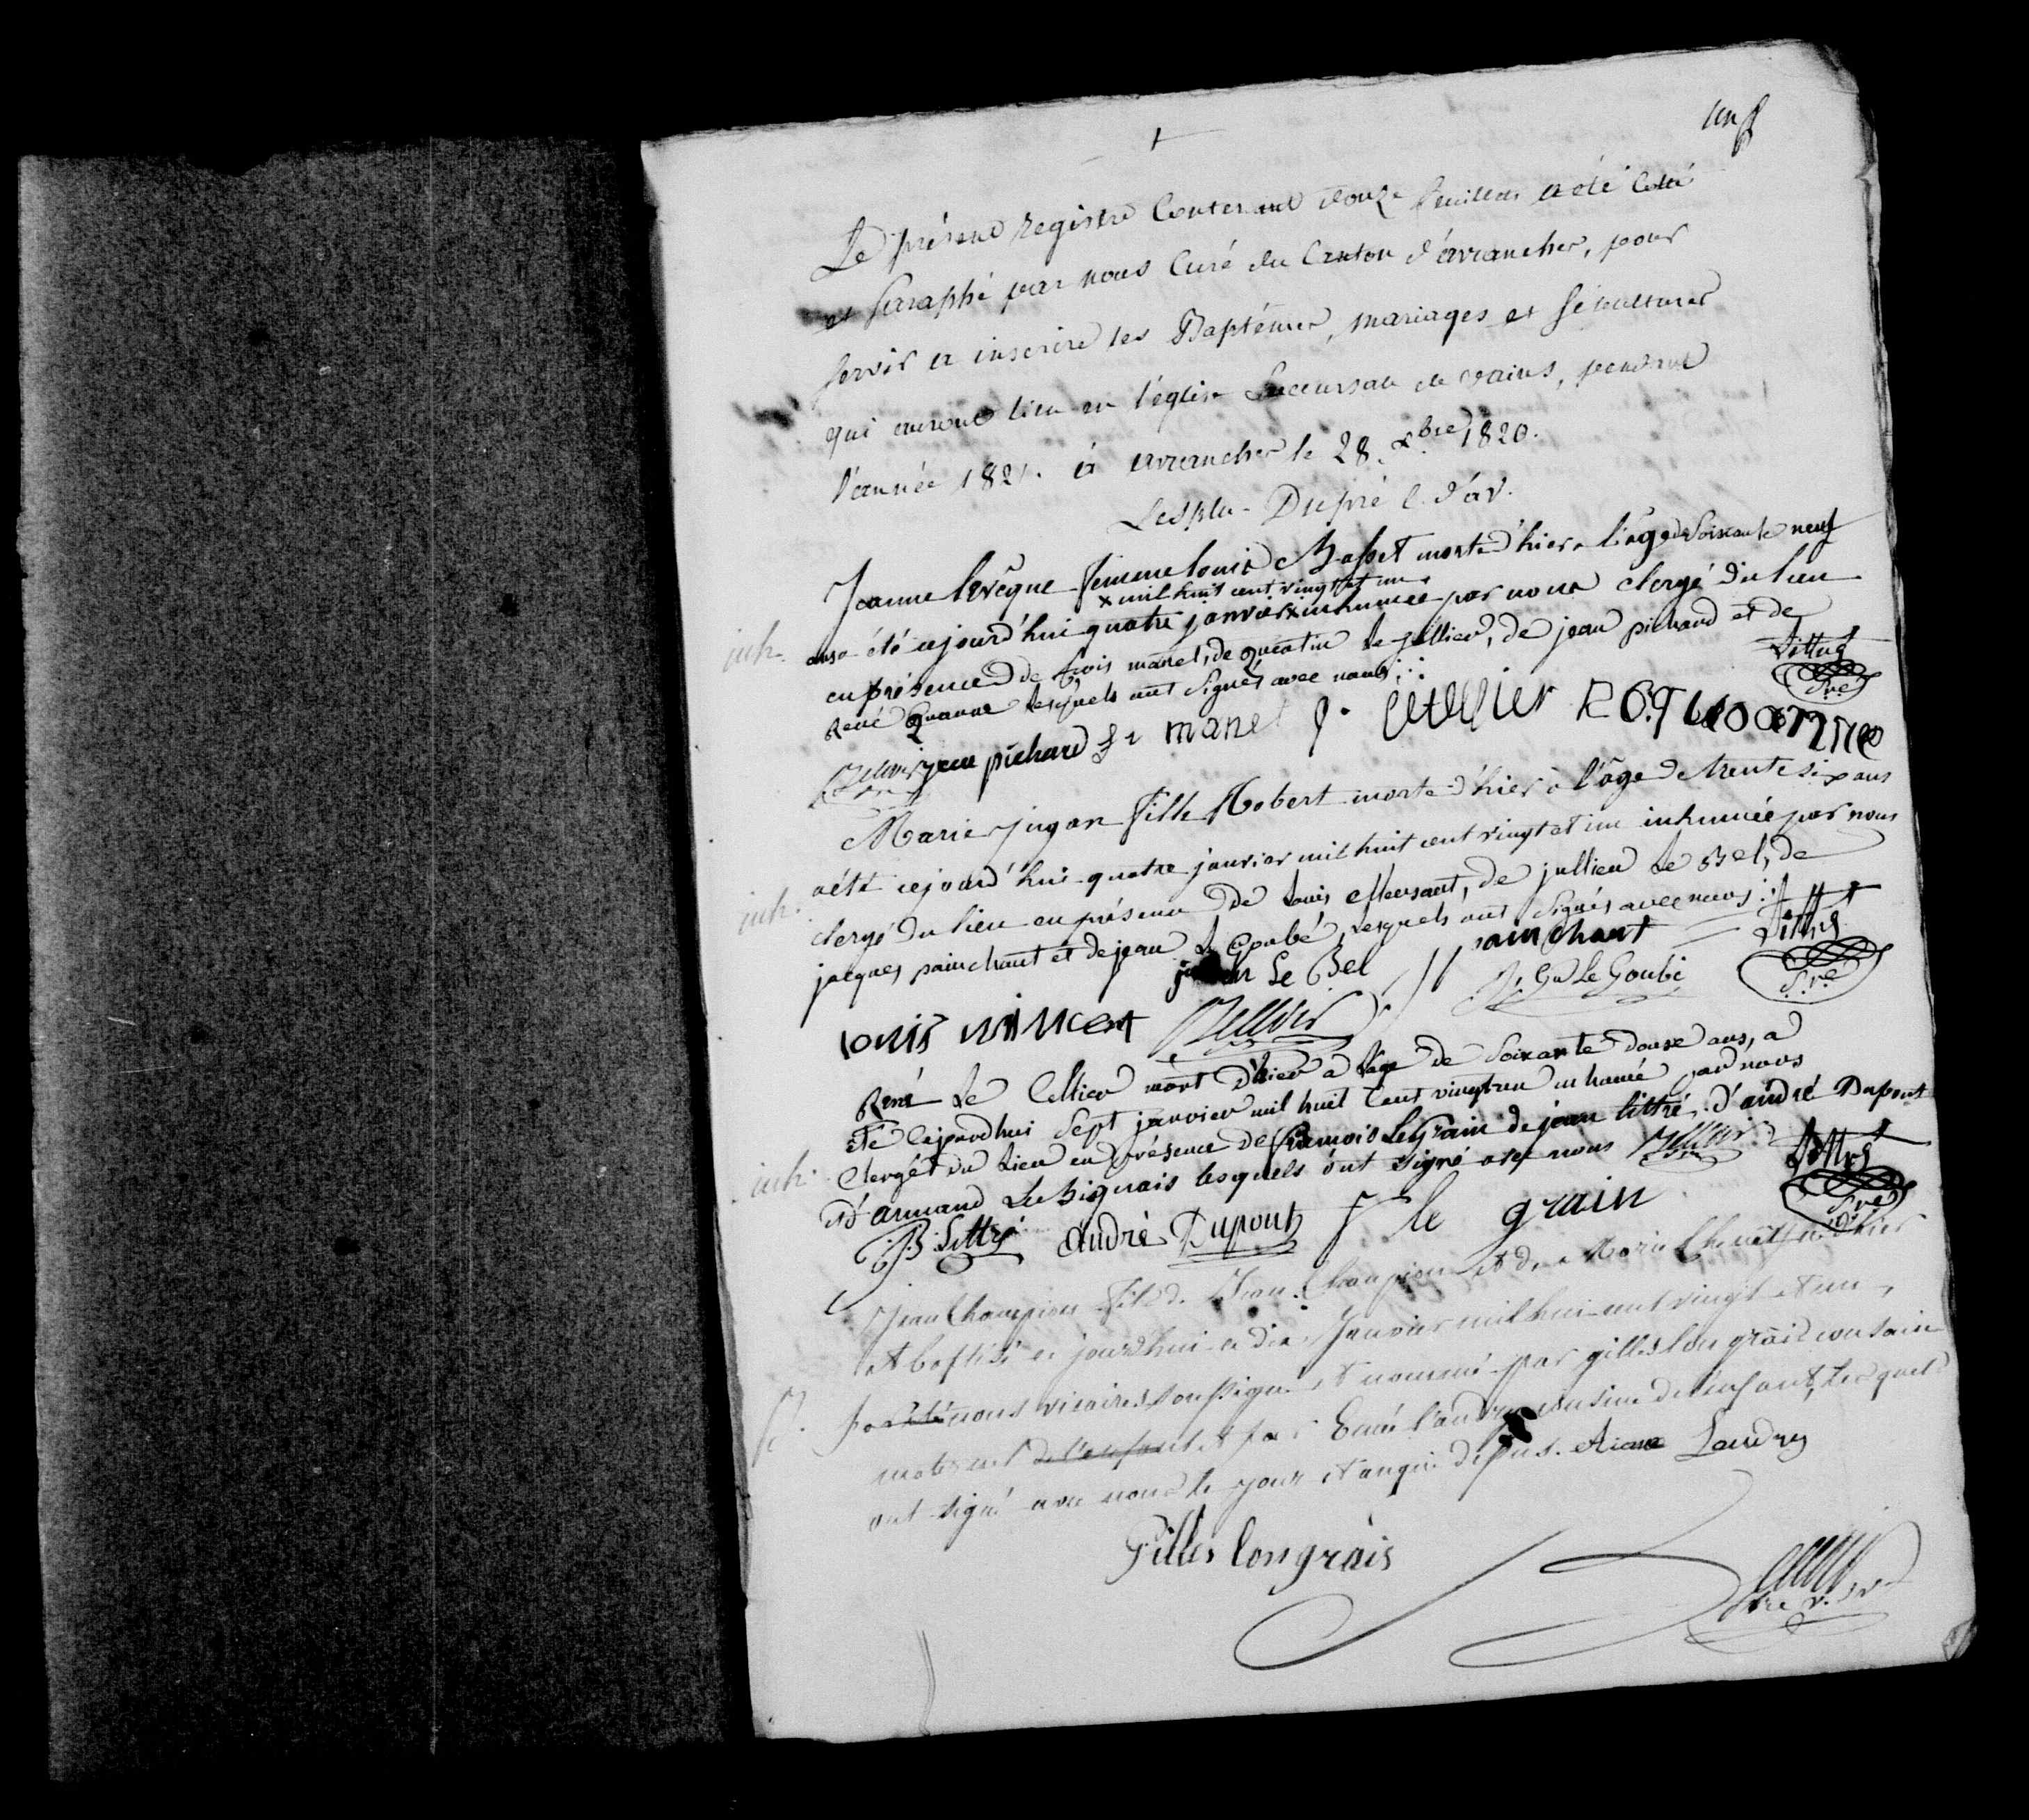 un
Le présent registre Contenant douze feuillets a été Coté
et Paraphé par nous Curé du Canton d'avranches, pour
servir a inscrire les Baptêmes, mariages et Sépultures
qui auront lieu en l'église Succursale de vains, pendant
l'année 1821. à avranches le 28. xbre 1820.
Dupré C. d'av.
Jeanne levêque femme louis Basset morte d'hier a l'âge de Soixante neuf
x mil huit cent vingt et un
ans a été cejourd'hui quatre janvier x inhumée par nous clergé du lieu
inh.
en présence de fçois manet, de quentin le tellier, de jean pichard et de
René Guanne lesquels ont signés avec nous
Littré
Pre
jean pichard fr manet
Marie jugan fille Robert morte d'hier à l'âge de trente six ans
a été cejourd'hui quatre janvier mil huit cent vingt et un inhumée par nous
inh.
clergé du lieu en présence de louis, de jullien Le Bel, de
jacques painchant et de jean Le Goubé, lesquels ont signés avec nous
painchant
Littré
Le Bel
Le Goubé
Pre
louis
René Le Cellier mort d'hier a l'age de Soixante douxe ans, a
eté Cejourdhui Sept janvier mil huit Cent vingt un inhumé par nous
inh.
Clergér du Lieu en présence de francois Le grain de jean littré, d'andré Dupont
et d'armand Le Bigrais lesquels ont signé avec nous
Littré
J B Littré andré Dupont f le grain
Pre
Jean Champion fils de Jean Champion et de Marie né d'hier
et baptisé ce jourd'hui ce dix Janvier mil hui cent vingt et un
B. par nous vicaire soussigné et nommé par gilles longrais cousin
maternel de l'enfant et par landry cousine de l'enfant, lesquels
ont signé avec nous le jour et an que depus. Landry
Gilles longrais
pre v.